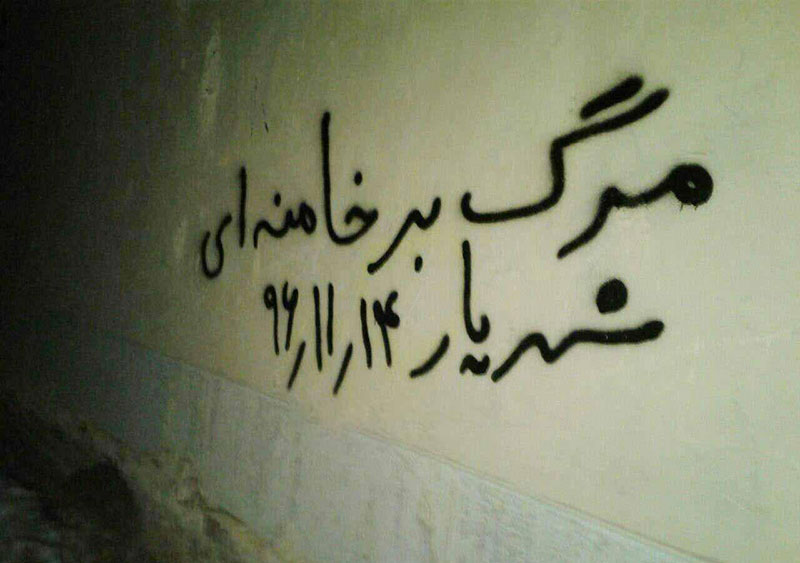 مرگ بر خامنه‌ای
شهریار ۹۶/۱۱/۱۴